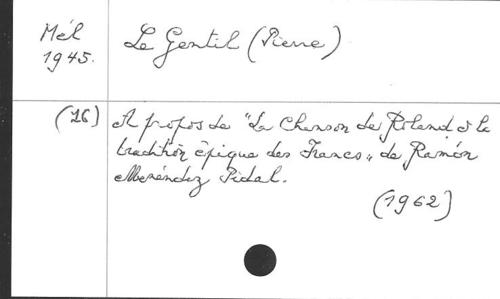 Mél
1945.
Le Gentil (Pierre)
(26)
A propos de "La Chanson de Roland & la
tradition épique des Francs" de Ramón
Menéndez Pidal.
(1962)